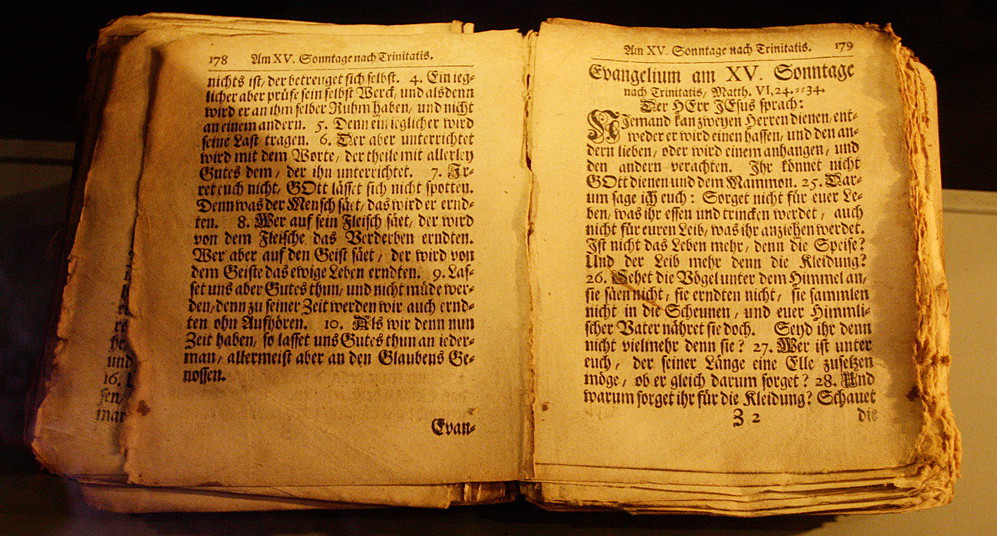 178 Am XV. Sonntage nach Trinitatis.
nichts ist, der betreuget sich selbst. 4. Ein ieg-
licher aber prüfe sein selbst Werck, und alsdenn
wird er an ihm selber Ruhm haben, und nicht
an einem andern. 5. Denn ein ieglicher wird
seine Last tragen. 6. Der aber unterrichtet
wird mit dem Worte, der theile mit allerley
Gutes dem, der ihn unterrichtet. 7. Ir-
ret euch nicht, GOtt lässet sich nicht spotten.
Denn was der Mensch säet, das wird er ernd-
ten. 8. Wer auf sein Fleisch säet, der wird
von dem Fleische das Verderben erndten.
Wer aber auf den Geist säet, der wird von
dem Geiste das ewige Leben erndten. 9. Las-
set uns aber Gutes thun, und nicht müde wer-
den, denn zu seiner Zeit werden wir auch ernd-
ten ohn Aufhören. 10. Als wir denn nun
Zeit haben, so lasset uns Gutes thun an ieder-
man, allermeist aber an den Glaubens Ge-
nossen.
Evan-
und
16.
mar
Am XV. Sonntage nach Trinitatis. 179
Evangelium am XV. Sonntage
nach Trinitatis, Matth. VI, 24.-34.
Der HErr JEsus sprach:
Niemand kan zweyen Herren dienen, ent-
weder er wird einen hassen, und den an-
dern lieben, oder wird einem anhangen, und
den andern verachten. Ihr könnet nicht
GOtt dienen und dem Mammon. 25. Dar-
um sage ich euch: Sorget nicht für euer Le-
ben, was ihr essen und trincken werdet, auch
nicht für euren Leib, was ihr anziehen werdet.
Ist nicht das Leben mehr, denn die Speise?
Und der Leib mehr denn die Kleidung?
26. Sehet die Vögel unter dem Himmel an,
sie säen nicht, sie erndten nicht, sie sammlen
nicht in die Scheunen, und euer Himmli-
scher Vater nähret sie doch. Seyd ihr denn
nicht vielmehr denn sie? 27. Wer ist unter
euch, der seiner Länge eine Elle zusetzen
möge, ob er gleich darum sorget? 28. Und
warum sorget ihr für die Kleidung? Schauet
3 2 die